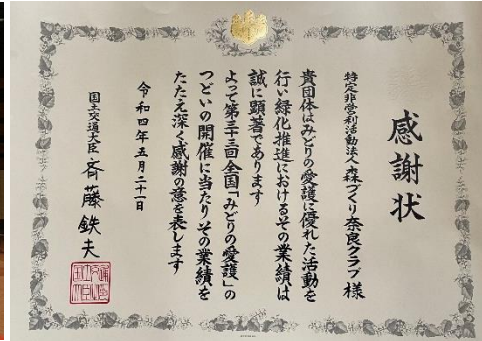 感謝状
特定非営利活動法人森づくり奈良クラブ 様
貴団体はみどりの愛護に優れた活動を
行い緑化推進におけるその業績は
誠に顕著であります
よって第三十三回全国「みどりの愛護」の
つどいの開催に当たりその業績を
たたえ深く感謝の意を表します
令和四年五月二十一日
国土交通大臣 斉藤鉄夫